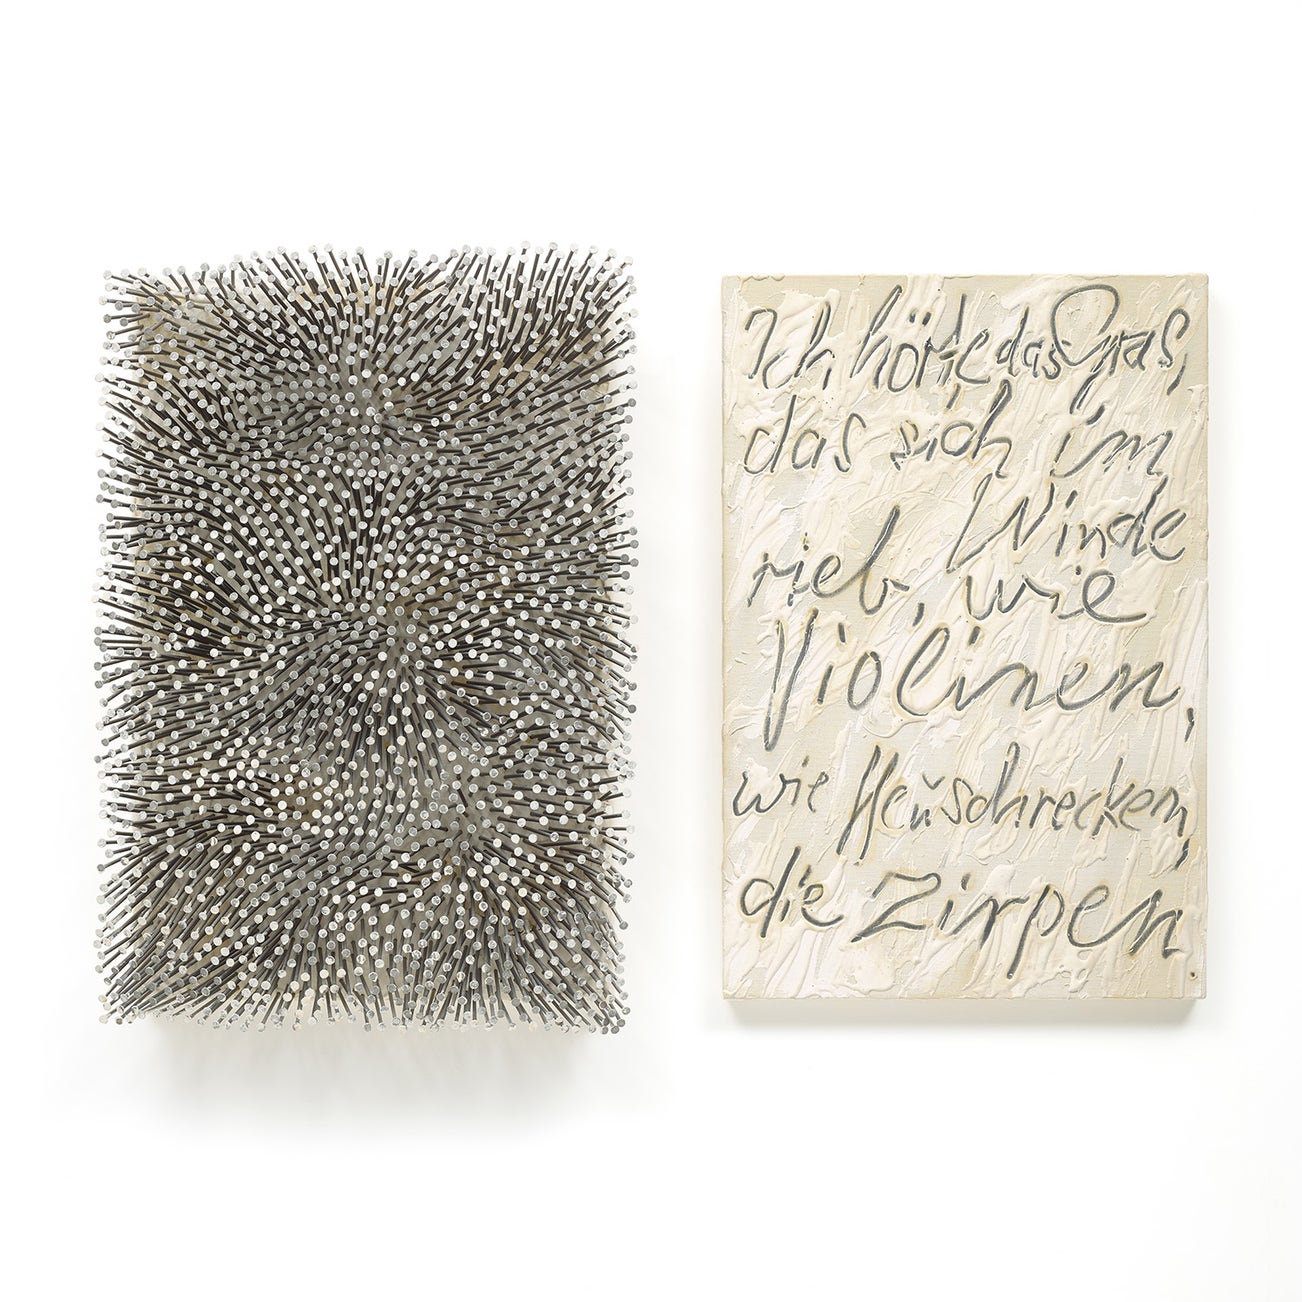 Ich hörte das Gras,
das sich im
Winde
rieb, wie
Violinen,
wie Heuschrecken,
die zirpen